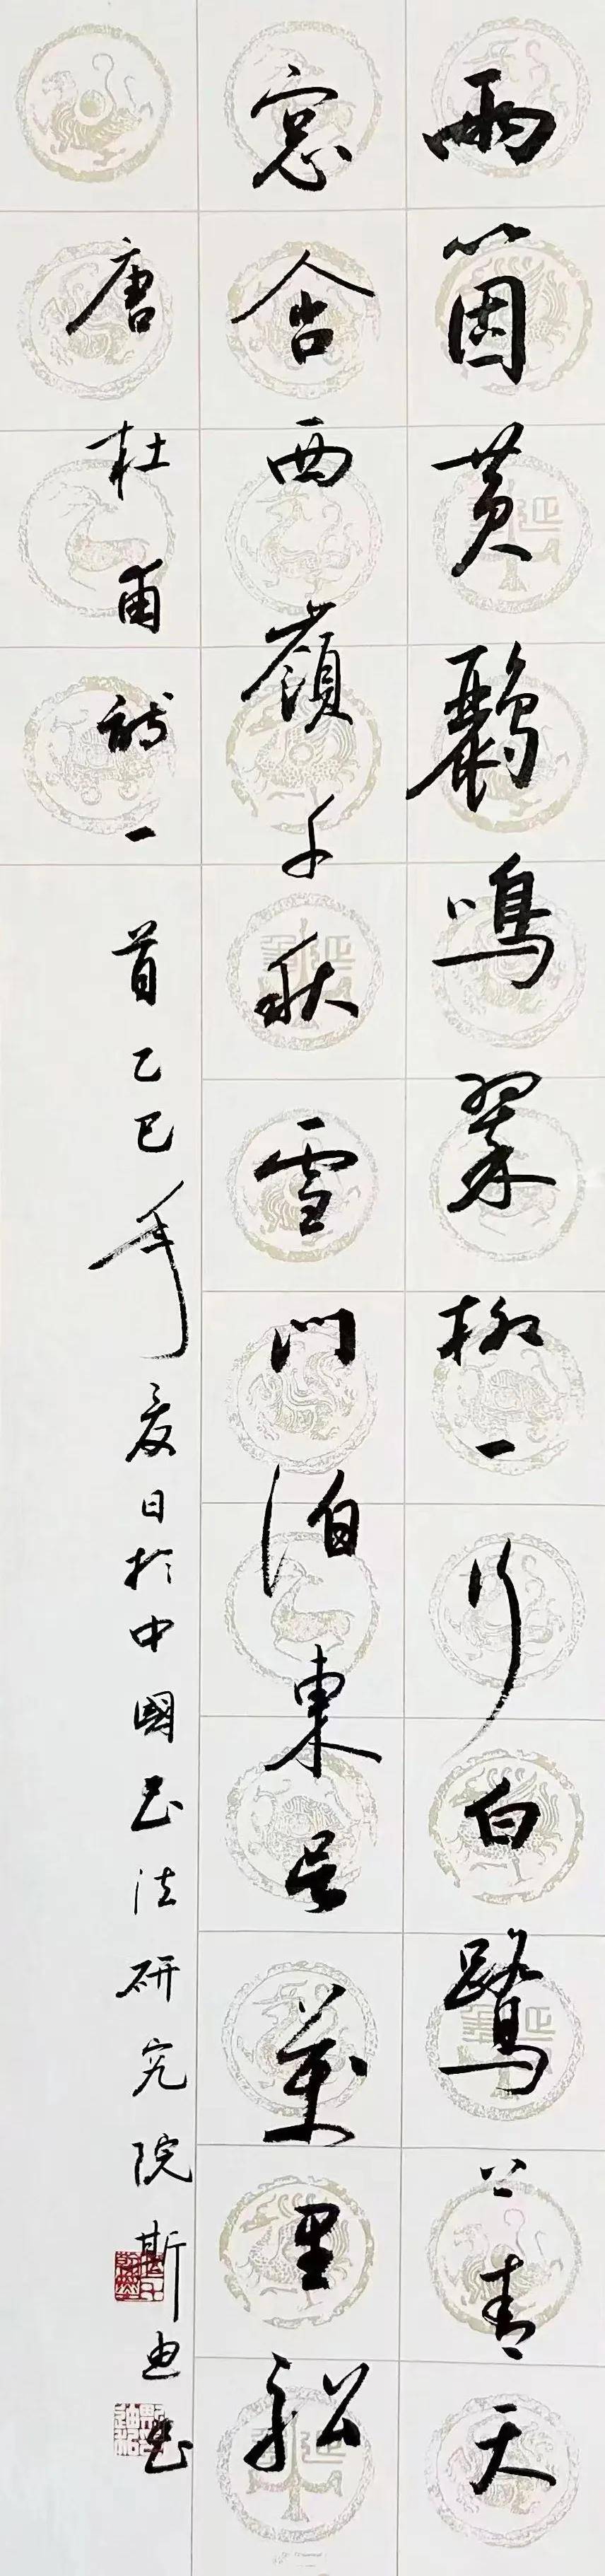 兩箇黃鸝鳴翠柳一行白鷺上青天
窓含西嶺千秋雪門泊東吳萬里船
唐杜甫詩一首乙巳年夏日於中國書法研究院斯迪書